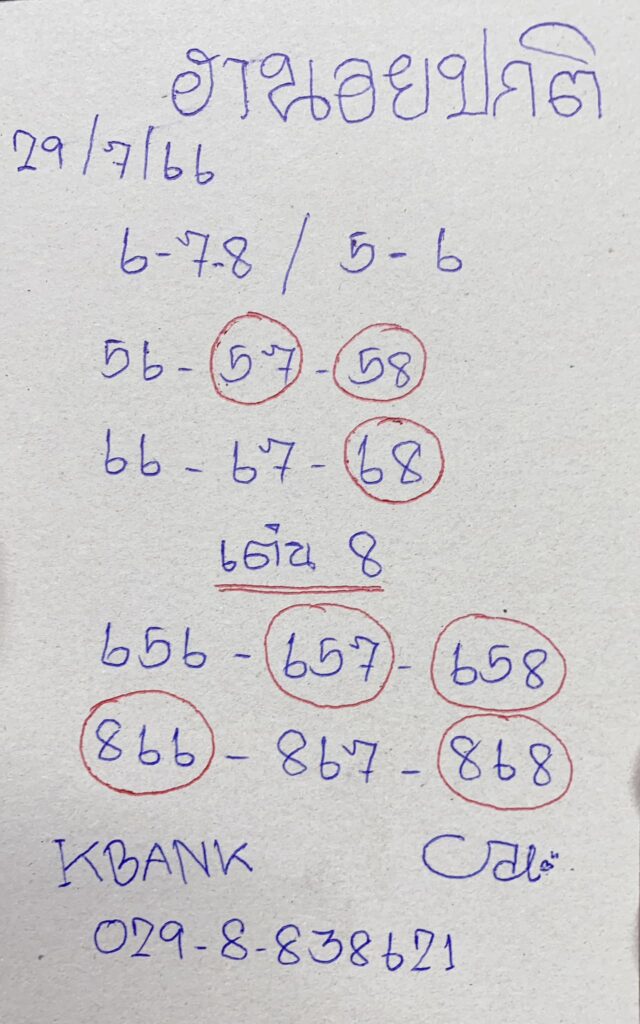 ฮานอยปกติ
29/7/66
6-7-8 / 5-6
56-57-58
66-67-68
เด่น 8
656-657-658
866-867-868
KBANK
029-8-838621